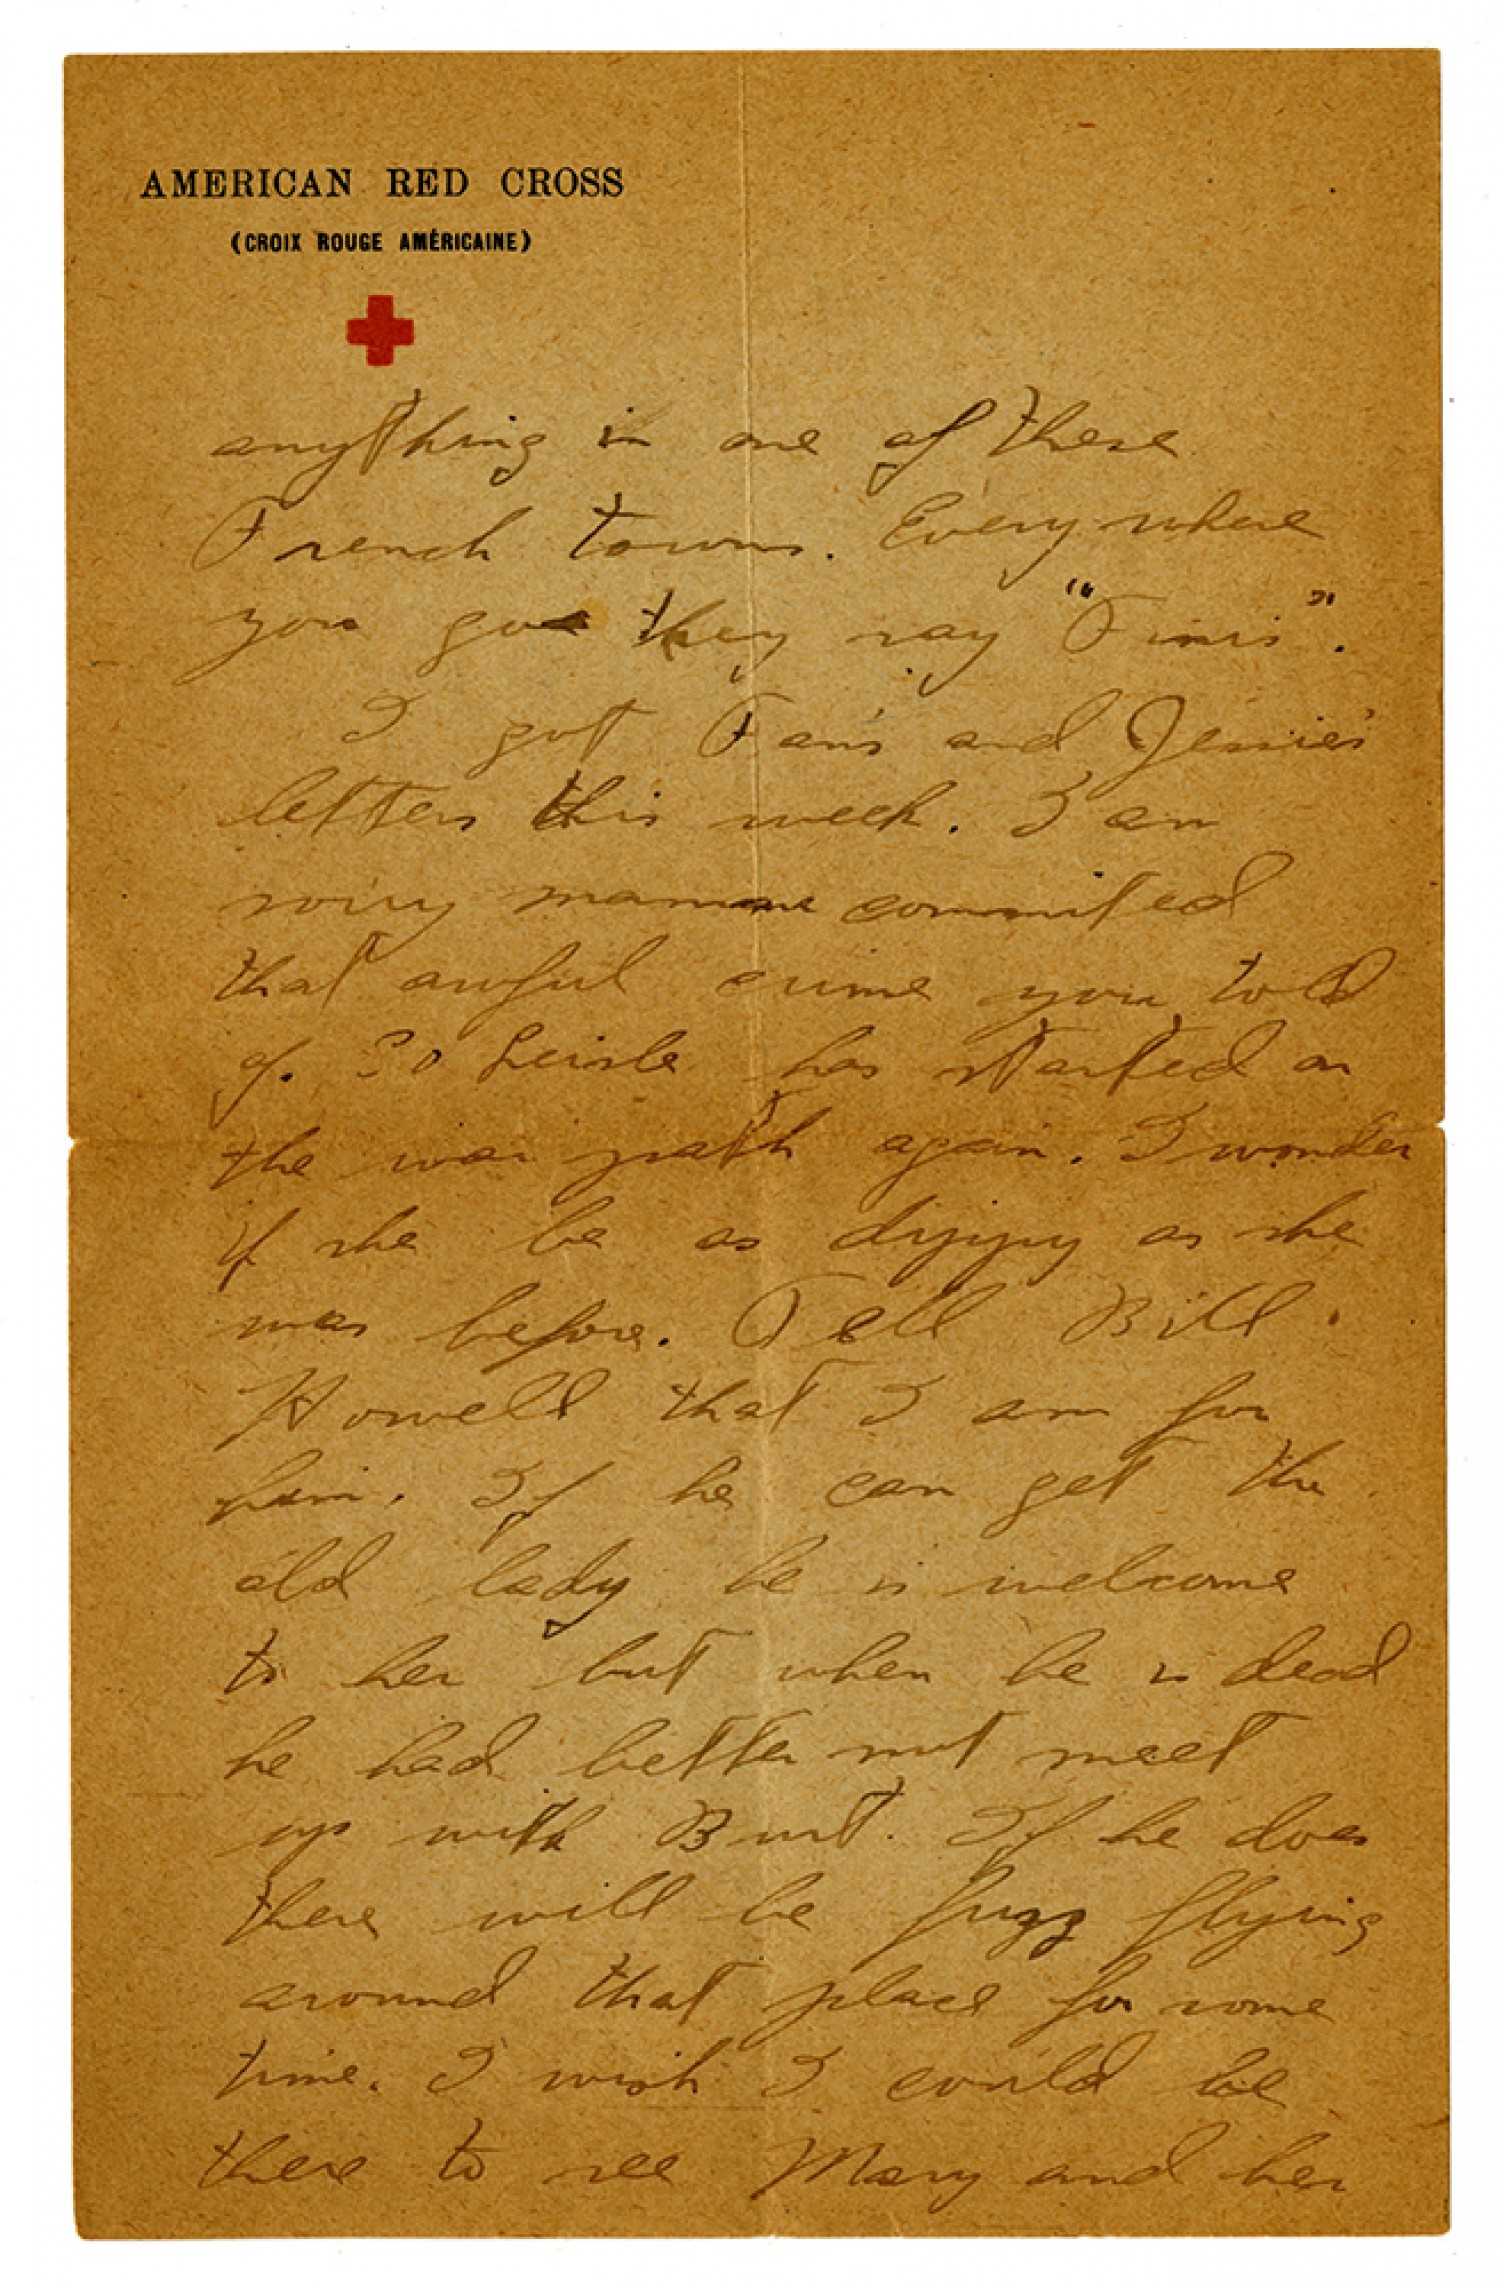 AMERICAN RED CROSS
(CROIX ROUGE AMÉRICAINE)
anything in one of these
French towns. Every where
you go they say "Finis".
I got Fan's and Jessie's
letters this week. I am
sorry mamma commited
that awful crime you told
of. So Leisle has started on
the war path again. I wonder
if she be as dizzy as she
was before. Tell Bill
Howell that I am for
him. If he can get the
old lady he is welcome
to her but when he is dead
he had better not meet
up with Burt. If he does
there will be fuzz flying
around that place for some
time. I wish I could be
there to see Mary and her